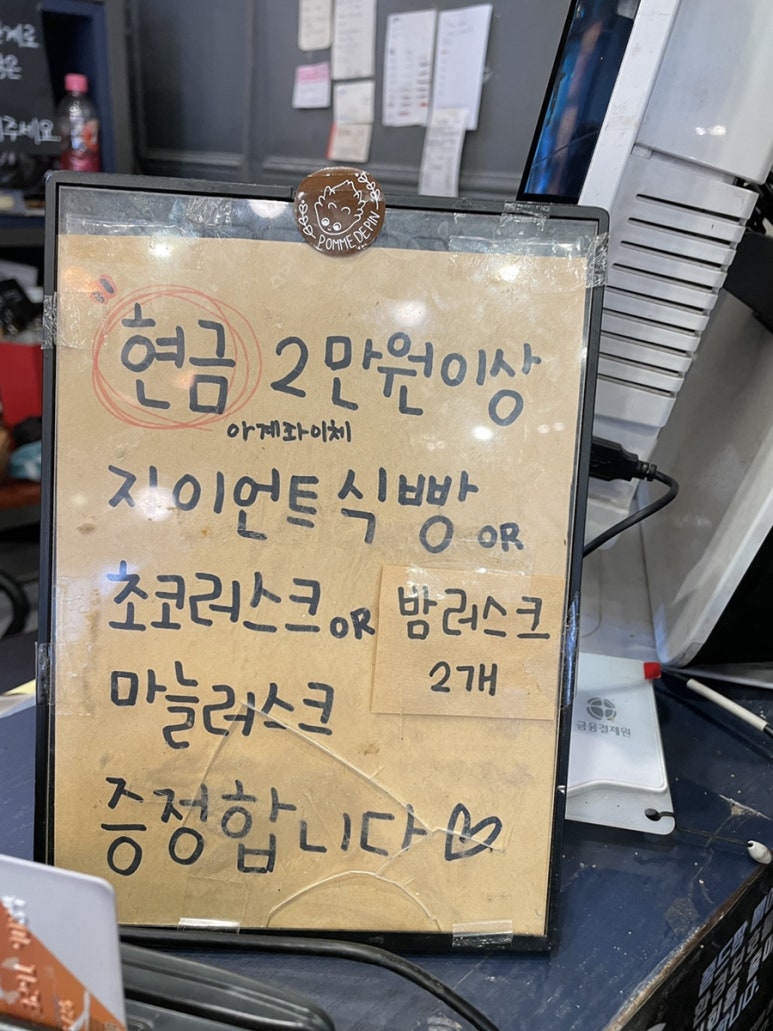 주세요
POMME DE PIN
현금 2만원이상
아계좌이체
지이언트식빵 OR
초코러스크 OR 밤러스크
2개
마늘러스크
증정합니다
금융결제원